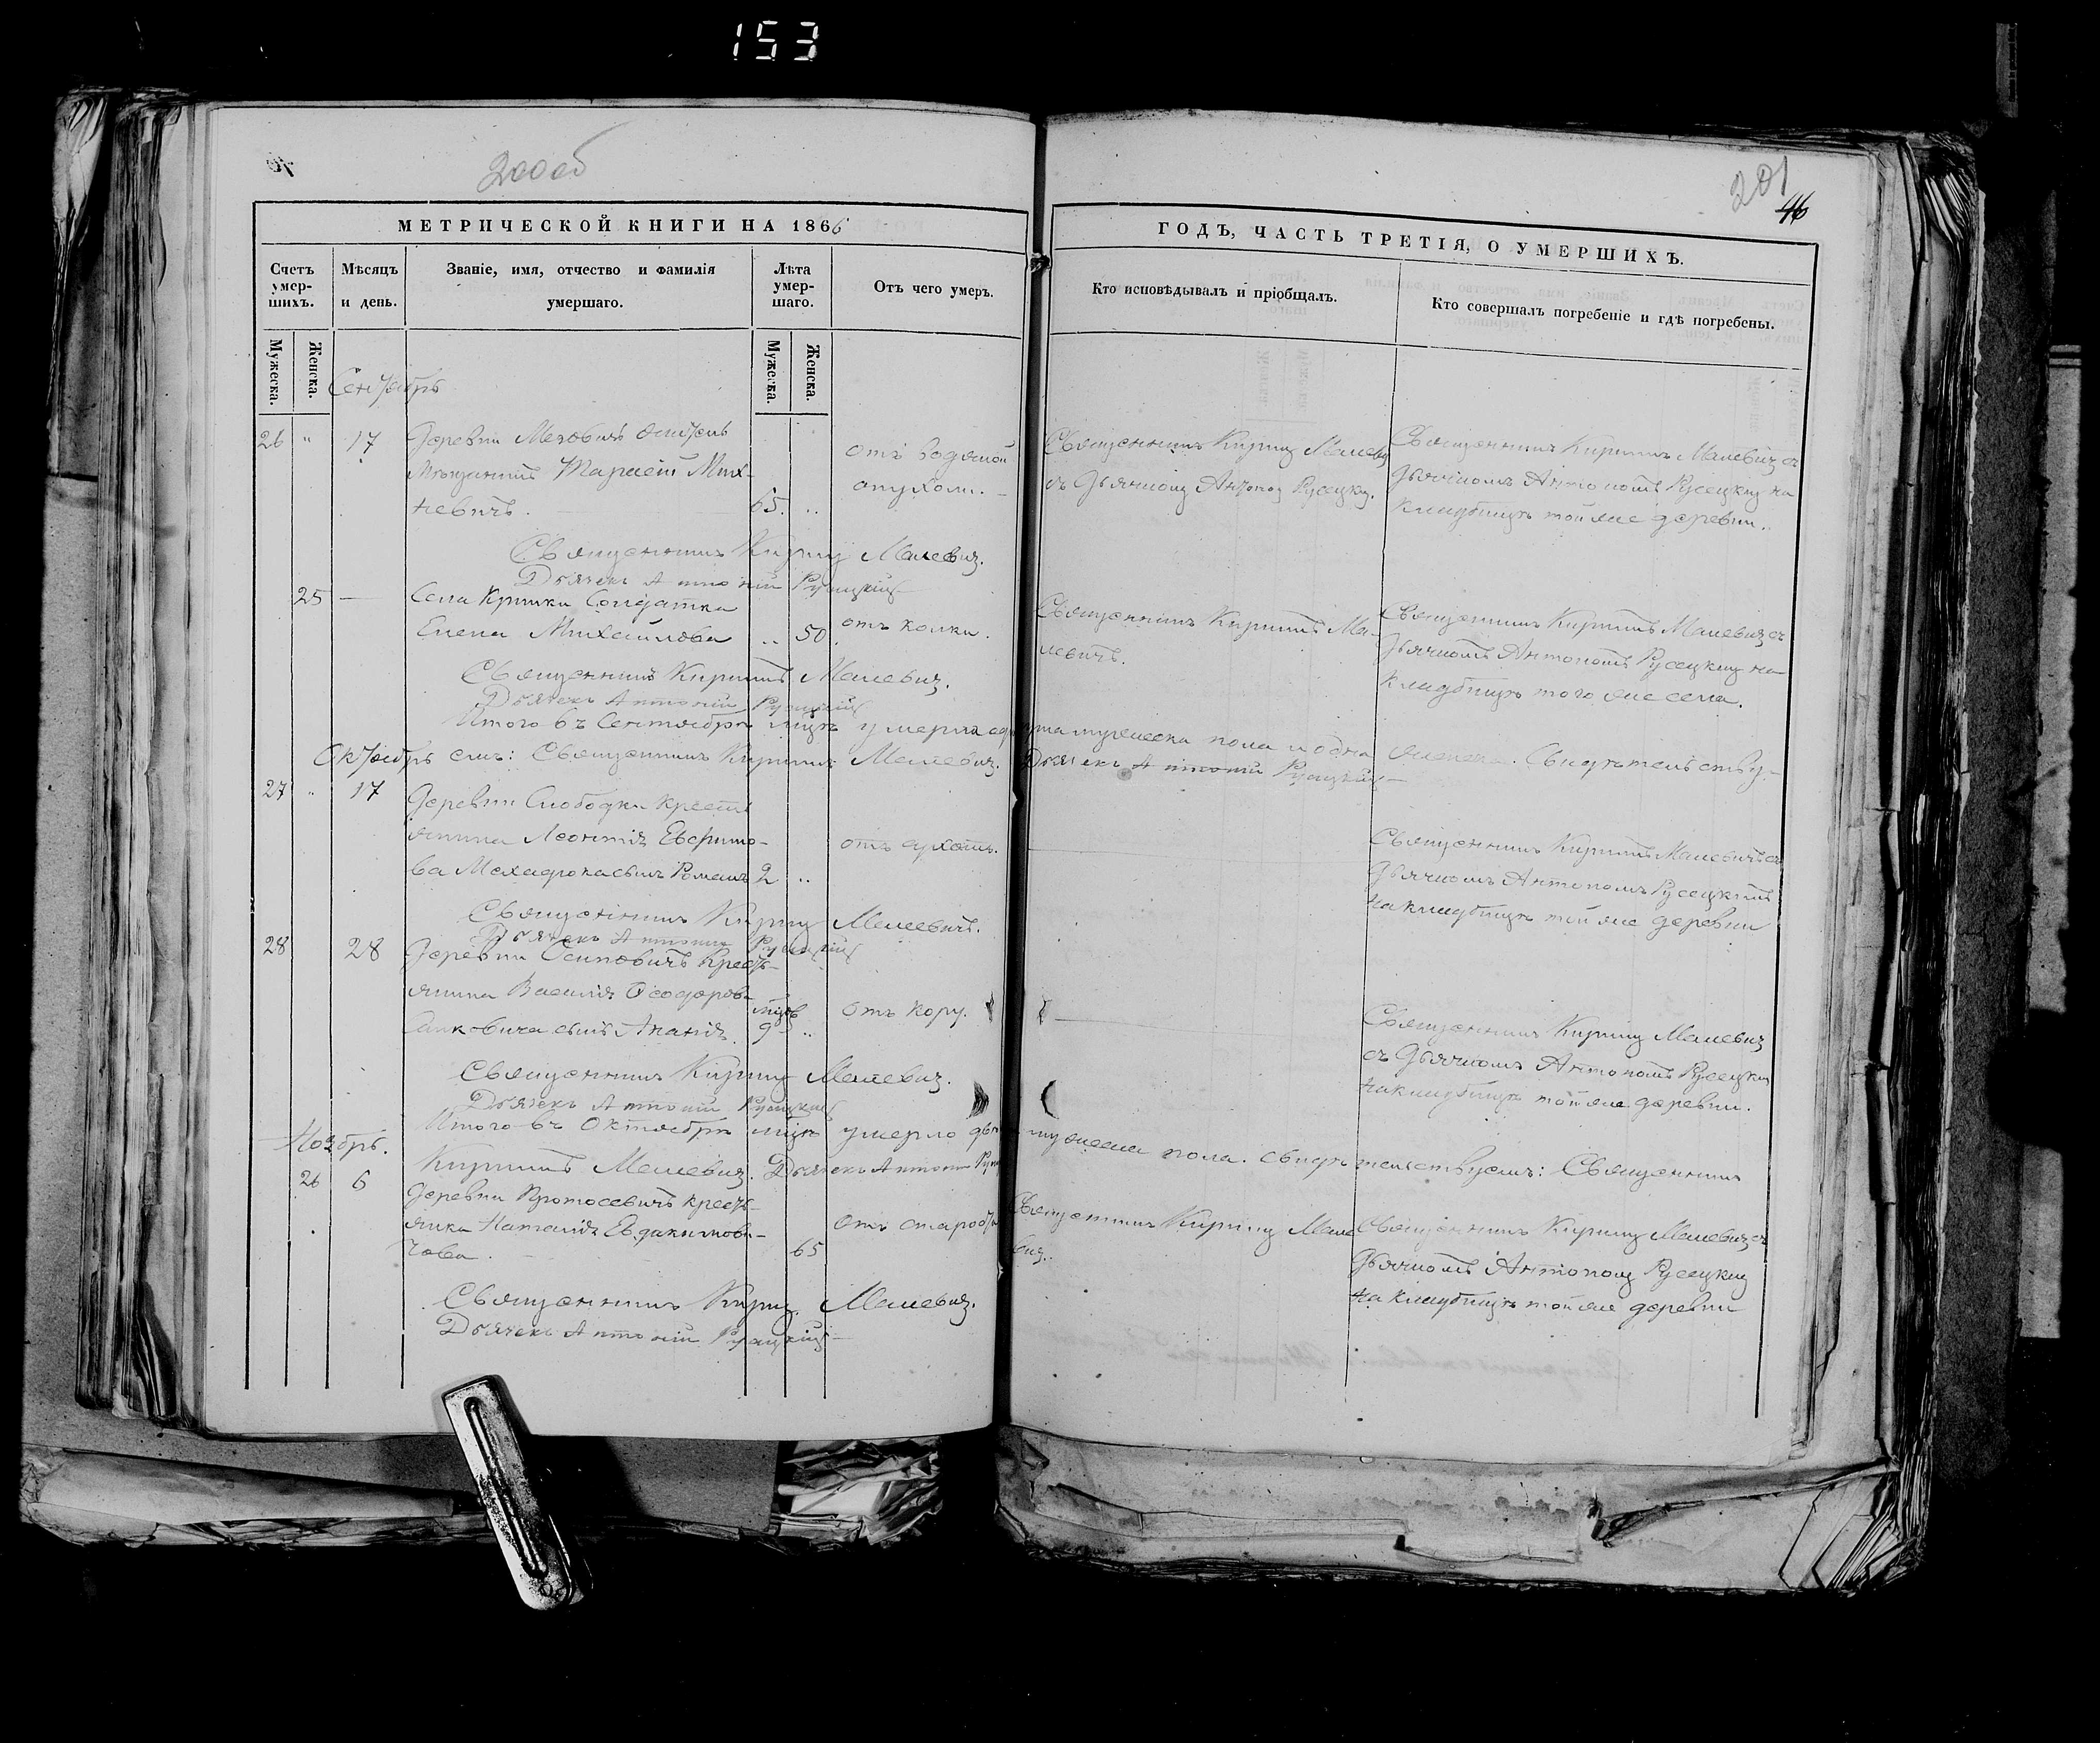 153
200об
201
46
МЕТРИЧЕСКОЙ КНИГИ НА 1866
ГОДЪ, ЧАСТЬ ТРЕТІЯ, О УМЕРШИХЪ.
Счетъ умер-шихъ.
Мѣсяцъ и день.
Званіе, имя, отчество и фамилія умершаго.
Лѣта умер-шаго.
Отъ чего умеръ.
Кто исповѣдывалъ и пріобщалъ.
Кто совершалъ погребеніе и гдѣ погребены.
Мужеска.
Женска.
Мужеска.
Женска.
Сентябрь
26 " 17 Деревни
Мѣщанинъ Тарасій Мих-
невичъ. 65. ..
отъ водяной
опухоли.
Священникъ Кирилъ Малевич
съ Дьячкомъ Антоном Русецким.
Священникъ Кирилъ Малевич съ
Дьячкомъ Антономъ Русецким на
кладбищѣ той же деревни.
Священникъ Кирилъ Малевич.
Дьячекъ Антоній Русецкій
25 — Села Кривки Солдатка
Елена Михайлова .. 50.
отъ колки.
Священникъ Кирилъ Ма-
левичъ.
Священникъ Кирилъ Малевич съ
Дьячкомъ Антономъ Русецким на
кладбищѣ того же села.
Священникъ Кирилъ Малевич.
Дьячекъ Антоній Русецкій
Итого въ Сентябрѣ м҃цѣ умерло одна мужеска пола и одна женска. Свидѣтельству-
Октябрь емъ: Священникъ Кирилъ Малевич. Дьячекъ Антоній Русецкій
27 " 17 Деревни Слободки крестья
янина Леонтія Ефимо-
ва сынъ Романъ 2 ..
отъ сухотъ.
Священникъ Кирилъ Малевичъ съ
Дьячкомъ Антономъ Русецкимъ
на кладбищѣ той же деревни
Священникъ Кирилъ Малевичъ.
Дьячекъ Антоній Русецкій
28 28 Деревни Осиповичъ Кресть-
янина Василія Ѳеодорова
Санковича сынъ Ананія. м҃цъ 9 ..
отъ кору.
Священникъ Кирилъ Малевич
съ Дьячкомъ Антономъ Русецким
на кладбищѣ той же деревни.
Священникъ Кирилъ Малевич.
Дьячекъ Антоній Русецкій
Итого въ Октябрѣ м҃цѣ умерло два мужеска пола. свидѣтельствуемъ: Священникъ
Ноябрь.
Кирилъ Малевич. Дьячекъ Антоній
26 6 Деревни Протосевичъ кресть-
янка Наталія Евдакимови-
чова. 65
отъ старости
Священникъ Кирилъ Мале
вич.
Священникъ Кирилъ Малевич съ
Дьячкомъ Антоном Русецким
на кладбищѣ той же деревни
Священникъ Кирил. Малевич.
Дьячекъ Антоній Русецкій